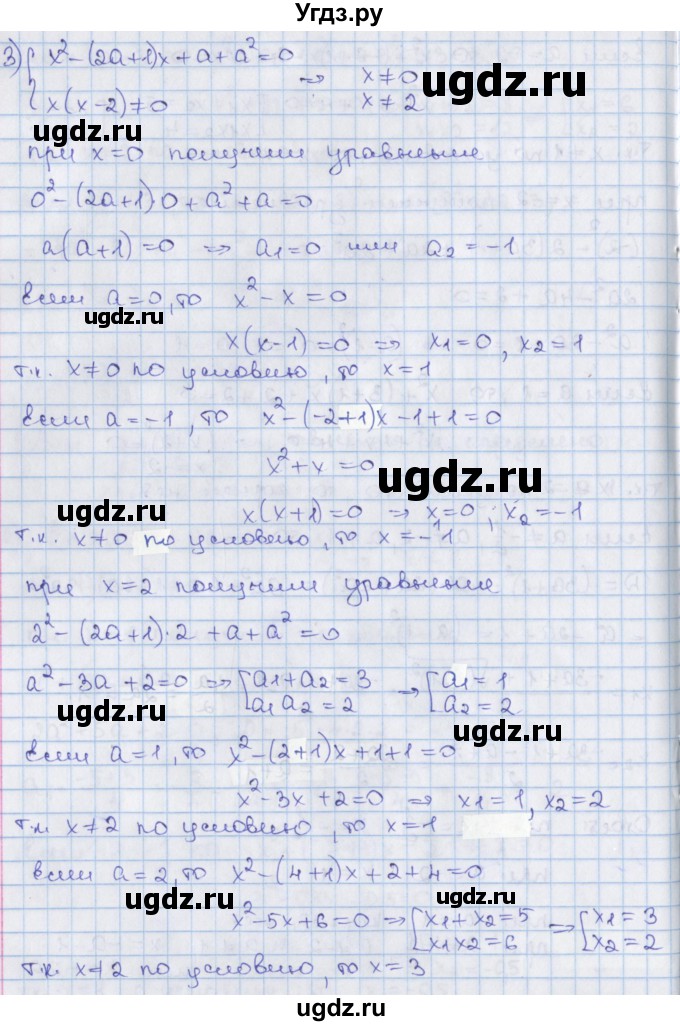 Угдз.ру
3) { x² - (2a+1)x + a + a² = 0
x(x-2) ≠ 0 => x ≠ 0
x ≠ 2
ugdz.ru
ugdz.ru
при x=0 получим уравнение
0² - (2a+1)·0 + a² + a = 0
ugdz.ru
a(a+1) = 0 => a₁ = 0 или a₂ = -1
если a=0, то x² - x = 0
ugdz.ru
x(x-1) = 0 => x₁ = 0, x₂ = 1
т.к. x≠0 по условию, то x = 1
если a = -1, то x² - (-2+1)x - 1 + 1 = 0
x² + x = 0
ugdz.ru
ugdz.ru
x(x+1) = 0 => x = 0; x₂ = -1
т.к. x≠0 по условию, то x = -1
ugdz.ru
при x=2 получим уравнение
2² - (2a+1)·2 + a + a² = 0
ugdz.ru
a² - 3a + 2 = 0 => { a₁ + a₂ = 3 → [ a₁ = 1
a₁ a₂ = 2 a₂ = 2
ugdz.ru
если a = 1, то x² - (2+1)x + 1 + 1 = 0
ugdz.ru
x² - 3x + 2 = 0 => x₁ = 1, x₂ = 2
т.к. x≠2 по условию, то x = 1
если a = 2, то x² - (4+1)x + 2 + 4 = 0
ugdz.ru
ugdz.ru
x² - 5x + 6 = 0 => { x₁ + x₂ = 5 => { x₁ = 3
x₁ x₂ = 6 x₂ = 2
т.к. x≠2 по условию, то x = 3
ugdz.ru
ugdz.ru